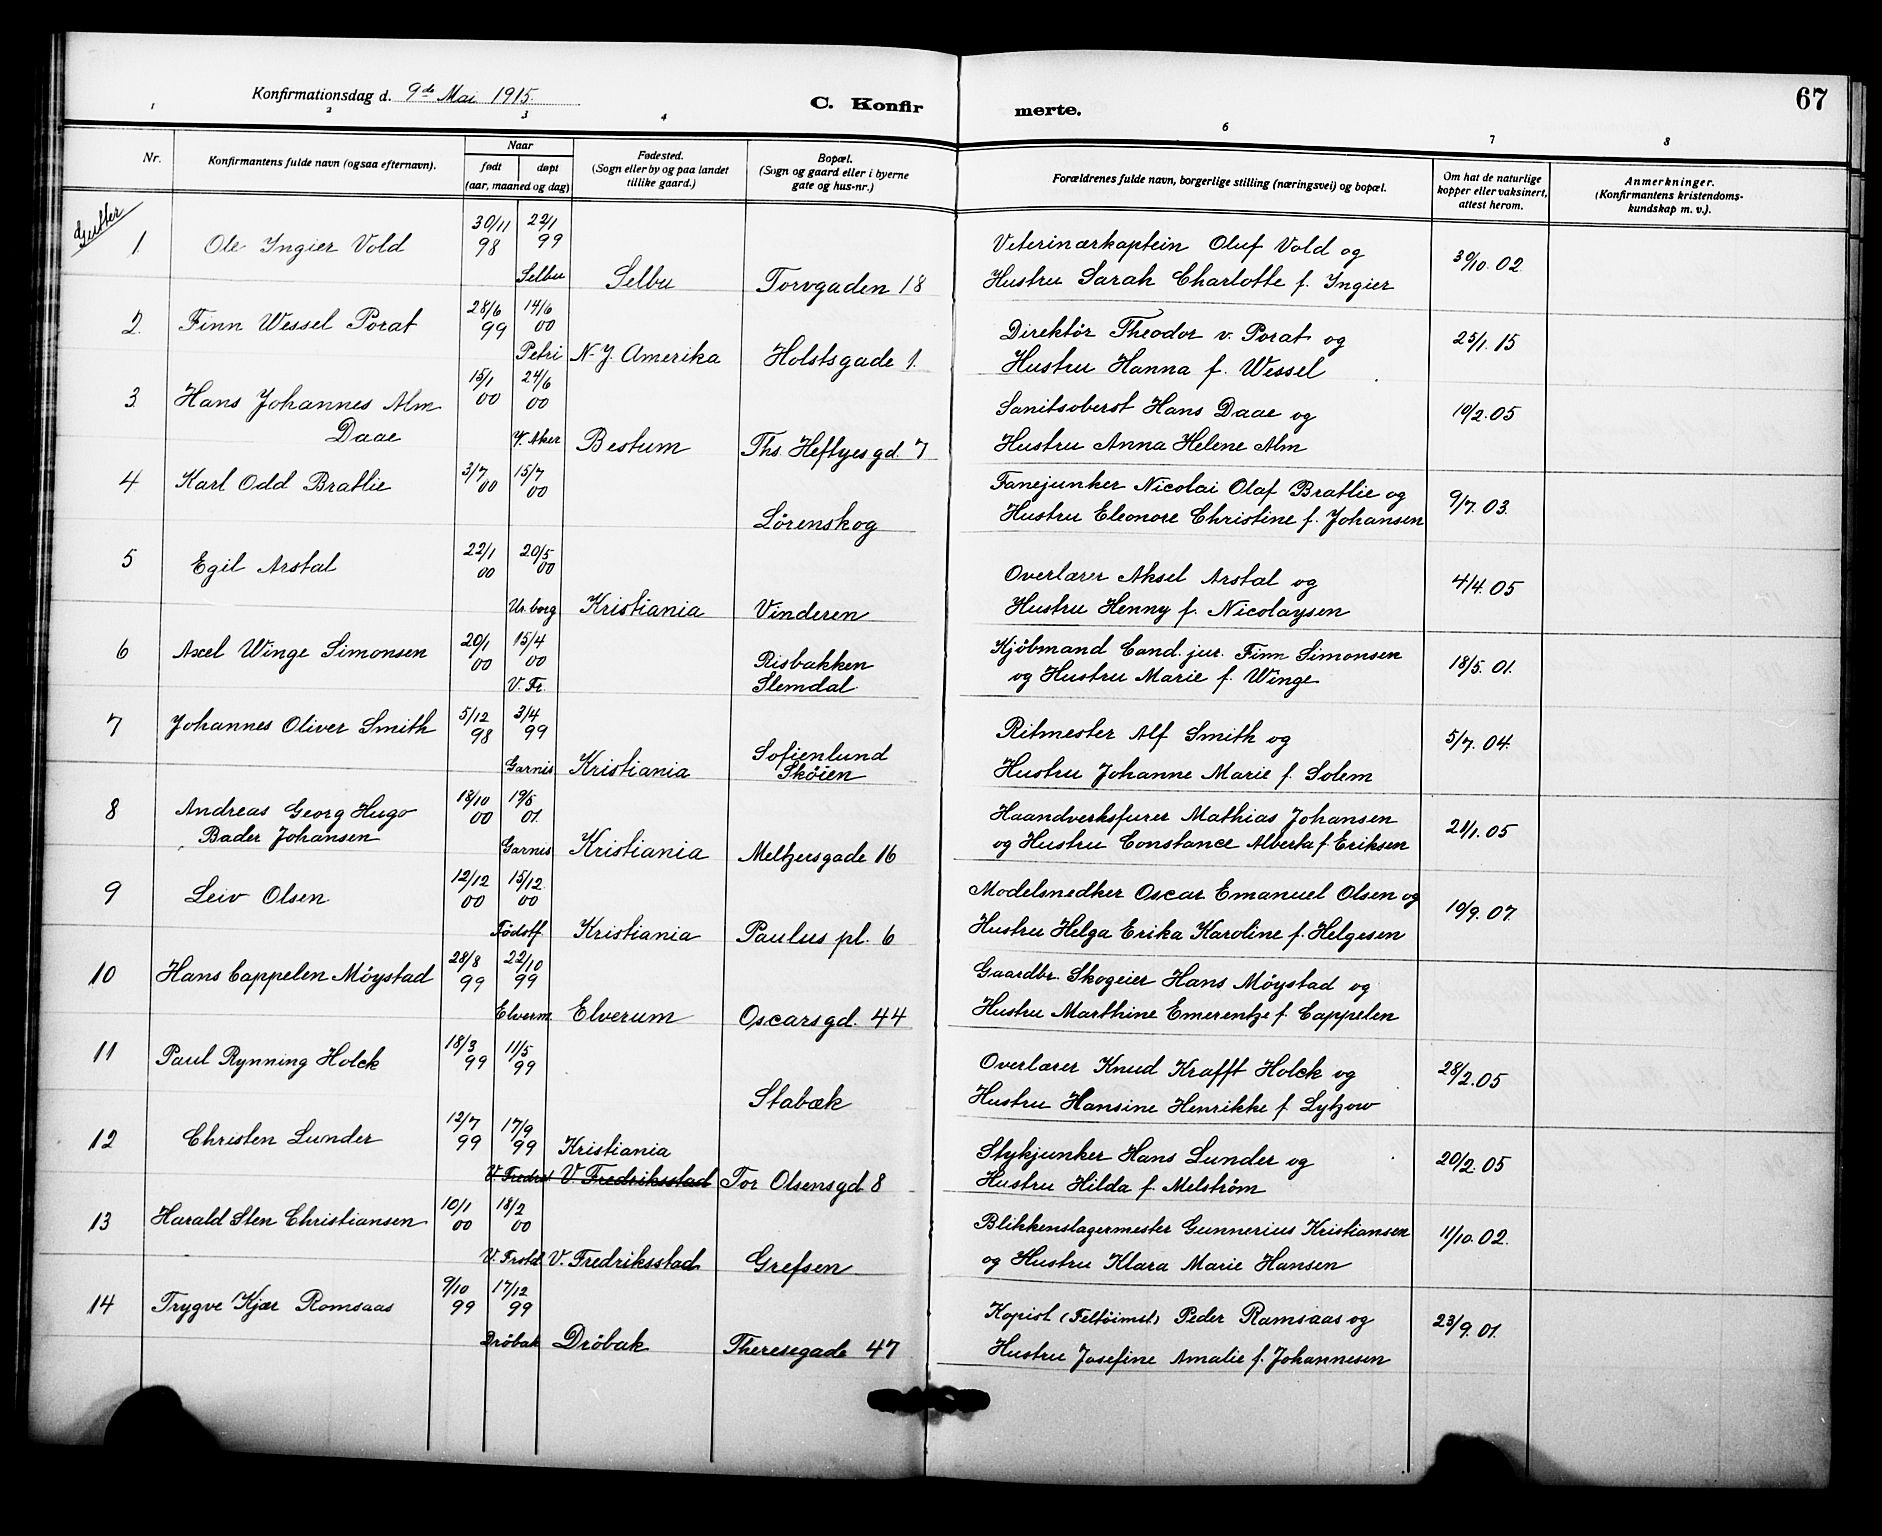 Konfirmationsdag d. 9de Mai 1915.
C. Konfirmerte.
67
1 2 3 4 5 6 7 8
Nr.
Konfirmantens fulde navn (ogsaa efternavn).
Naar
født
døpt
(aar, maaned og dag)
Fødested.
(Sogn eller by og paa landet
tillike gaard.)
Bopæl.
(Sogn og gaard eller i byerne
gate og hus-nr.)
Forældrenes fulde navn, borgerlige stilling (næringsvei) og bopæl.
Om hat de naturlige
kopper eller vaksinert,
attest herom.
Anmerkninger.
(Konfirmantens kristendoms-
kundskap m. v.).
Gutter
1 Ole Ingier Vold 30/11 98 22/1 99 Veterinærkaptein Oluf Vold og 30/10. 02.
Selbu Selbu Torvgaden 18 Hustru Sarah Charlotte f. Ingier
2. Finn Wessel Porat 28/6 99 14/6 00 Direktør Theodor v. Porat og 25/1. 15
Petri N-Y. Amerika Holstsgade 1. Hustru Hanna f. Wessel
3. Hans Johannes Alm 15/1 00 24/6 00 Sanitsoberst Hans Daae og 10/2. 05
Daae V. Aker Bestum Ths. Heftyesgd. 7 Hustru Anna Helene Alm
4 Karl Odd Bratlie 3/7 00 15/7 00 Fanejunker Nicolai Olaf Bratlie og 9/7. 03.
Lørenskog Hustru Eleonore Christine f. Johansen
5 Egil Arstal 22/1 00 20/5 00 Overlærer Aksel Arstal og 4/4. 05
Ur.borg Kristiania Vinderen Hustru Henny f. Nicolaysen
6 Axel Winge Simonsen 20/1 00 15/4 00 Risbakken Kjøbmand Cand. jur. Finn Simonsen 18/5. 01.
V. Fr. Slemdal og Hustru Marie f. Winge
7 Johannes Oliver Smith 5/12 98 3/4 99 Sofienlund Ritmester Alf Smith og 5/7. 04.
Garnis Kristiania Skøien Hustru Johanne Marie f. Solem
8 Andreas Georg Hugo 18/10 00 19/5 01. Haandverksfurer Mathias Johansen 21/1. 05
Bader Johansen Garnis Kristiania Meltzersgade 16 og Hustru Constance Alberta f Eriksen
9 Leiv Olsen 12/12 00 15/12. 00 Modelsnedker Oscar Emanuel Olsen og 10/9. 07.
Fødstf Kristiania Paulus pl. 6 Hustru Helga Erika Karoline f. Helgesen
10 Hans Cappelen Møystad 28/8 99 22/10 99 Gaardbr. Skogeier Hans Møystad og
Elverm. Elverum Oscarsgd. 44 Hustru Marthine Emerentze f. Cappelen
11 Paul Rynning Holck 18/3 99 11/5 99 Overlærer Knud Krafft Holck og 28/2. 05
Stabæk Hustru Hansine Henrikke f. Lytzow
12 Christen Lunder 12/7 99 17/9 99 Kristiania Stykjunker Hans Lunder og 20/2. 05
V. Fredrst V. Fredriksstad Tor Olsensgd 8 Hustru Hilda f. Melstrøm
13 Harald Sten Christiansen 10/1 00 18/2 00 Blikkenslagermester Gunnerius Kristiansen 11/10. 02.
V. Frstd V. Fredriksstad Grefsen og Hustru Klara Marie Hansen
14 Trygve Kjær Romsaas 9/10 99 17/12 99 Kopist (Feltøimst) Peder Ramsaas og 23/9. 01.
Drøbak Drøbak Theresegade 47 Hustru Josefine Amalie f. Johannesen